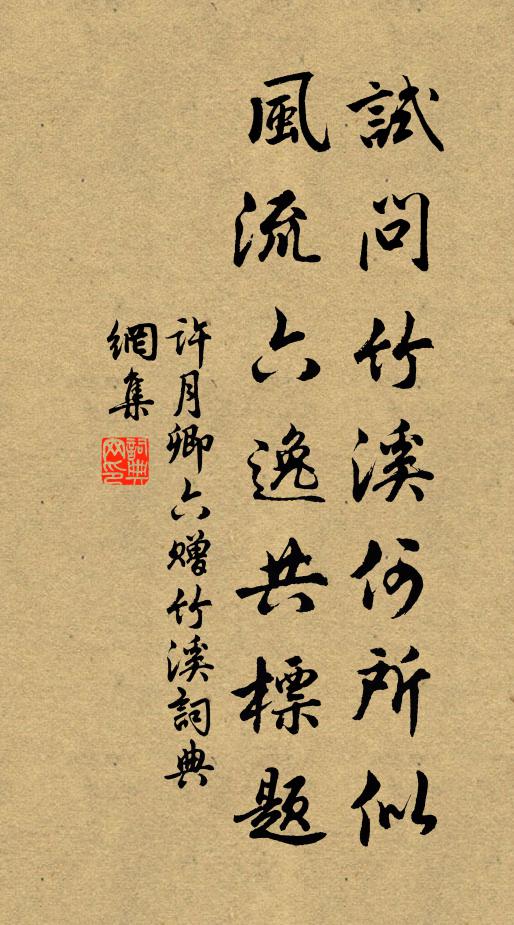 試問竹溪何所似
風流六逸共標題
許月卿六贈竹溪詞典
網集
詞典
网印